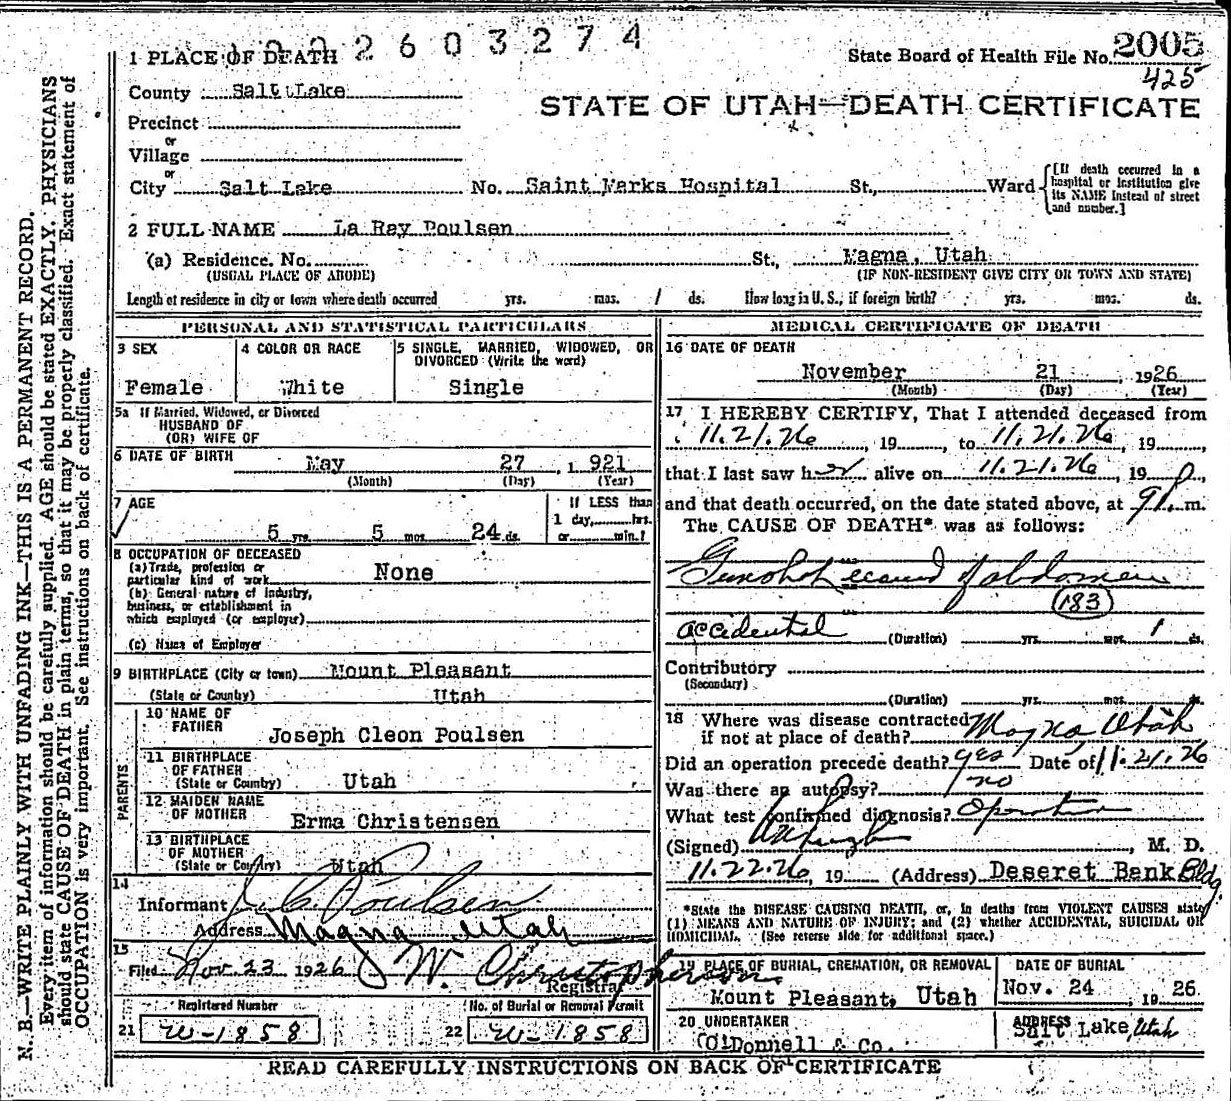 2603274
1 PLACE OF DEATH
State Board of Health File No. 2005
425
County Salt Lake
STATE OF UTAH—DEATH CERTIFICATE
Precinct
or
Village
or
City Salt Lake No. Saint Marks Hospital St., Ward
[If death occurred in a hospital or institution give its NAME instead of street and number.]
2 FULL NAME La Ray Poulsen
(a) Residence. No. St., Magna, Utah
(USUAL PLACE OF ABODE) (IF NON-RESIDENT GIVE CITY OR TOWN AND STATE)
Length of residence in city or town where death occurred yrs. mos. / ds. How long in U. S., if foreign birth? yrs. mos. ds.
PERSONAL AND STATISTICAL PARTICULARS
3 SEX
Female
4 COLOR OR RACE
White
5 SINGLE, MARRIED, WIDOWED, OR
DIVORCED (Write the word)
Single
5a If Married, Widowed, or Divorced
HUSBAND OF
(OR) WIFE OF
6 DATE OF BIRTH May 27, 1921
(Month) (Day) (Year)
7 AGE
5 yrs. 5 mos. 24 ds.
If LESS than
1 day, hrs.
or min.?
8 OCCUPATION OF DECEASED
(a) Trade, profession or
particular kind of work None
(b) General nature of industry,
business, or establishment in
which employed (or employer)
(c) Name of Employer
9 BIRTHPLACE (City or town) Mount Pleasant
(State or Country) Utah
PARENTS
10 NAME OF
FATHER Joseph Cleon Poulsen
11 BIRTHPLACE
OF FATHER
(State or Country) Utah
12 MAIDEN NAME
OF MOTHER Erma Christensen
13 BIRTHPLACE
OF MOTHER
(State or Country) Utah
14
Informant J. C. Poulsen
Address Magna Utah
15
Filed Nov. 23 1926 J W. Christopherson
Registrar
Registered Number No. of Burial or Removal Permit
21 W-1858 22 W-1858
MEDICAL CERTIFICATE OF DEATH
16 DATE OF DEATH
November 21, 1926
(Month) (Day) (Year)
17 I HEREBY CERTIFY, That I attended deceased from
11.21.26, 19 to 11.21.26, 19
that I last saw her alive on 11.21.26, 19
and that death occurred, on the date stated above, at 9 P. m.
The CAUSE OF DEATH* was as follows:
Gunshot wound of abdomen
183
accidental (Duration) yrs. mos. 1 ds.
Contributory
(Secondary)
(Duration) yrs. mos. ds.
18 Where was disease contracted
if not at place of death? Magna Utah
Did an operation precede death? yes Date of 11.21.26
Was there an autopsy? no
What test confirmed diagnosis? Operation
(Signed) , M. D.
11.22.26, 19 (Address) Deseret Bank Bldg.
*State the DISEASE CAUSING DEATH, or, in deaths from VIOLENT CAUSES state
(1) MEANS AND NATURE OF INJURY; and (2) whether ACCIDENTAL, SUICIDAL OR
HOMICIDAL. (See reverse side for additional space.)
19 PLACE OF BURIAL, CREMATION, OR REMOVAL
Mount Pleasant, Utah
DATE OF BURIAL
Nov. 24, 1926
20 UNDERTAKER
O'Donnell & Co.
ADDRESS
Salt Lake, Utah
READ CAREFULLY INSTRUCTIONS ON BACK OF CERTIFICATE
N. B.—WRITE PLAINLY WITH UNFADING INK—THIS IS A PERMANENT RECORD.
Every item of information should be carefully supplied. AGE should be stated EXACTLY. PHYSICIANS
should state CAUSE OF DEATH in plain terms, so that it may be properly classified. Exact statement of
OCCUPATION is very important. See instructions on back of certificate.